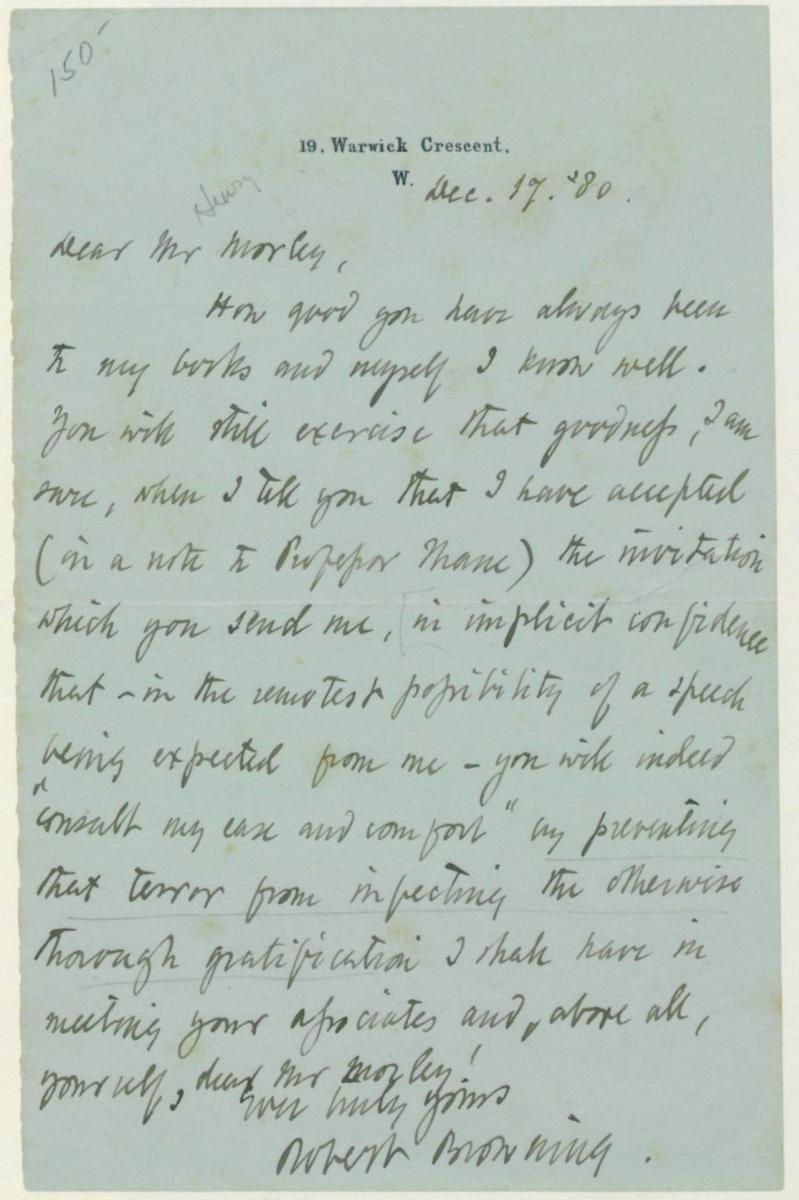 150
19. Warwick Crescent.
W.
Dec. 17. '80.
Henry
Dear Mr Morley,
How good you have always been
to my books and myself I know well.
You will still exercise that goodness, I am
sure, when I tell you that I have accepted
(in a note to Professor Thane) the invitation
which you send me, [in implicit confidence
that – in the remotest possibility of a speech
being expected from me – you will indeed
"consult my ease and comfort" by preventing
that terror from infecting the otherwise
thorough gratification I shall have in
meeting your associates and, above all,
yourself, dear Mr Morley!
Ever truly yours
Robert Browning.